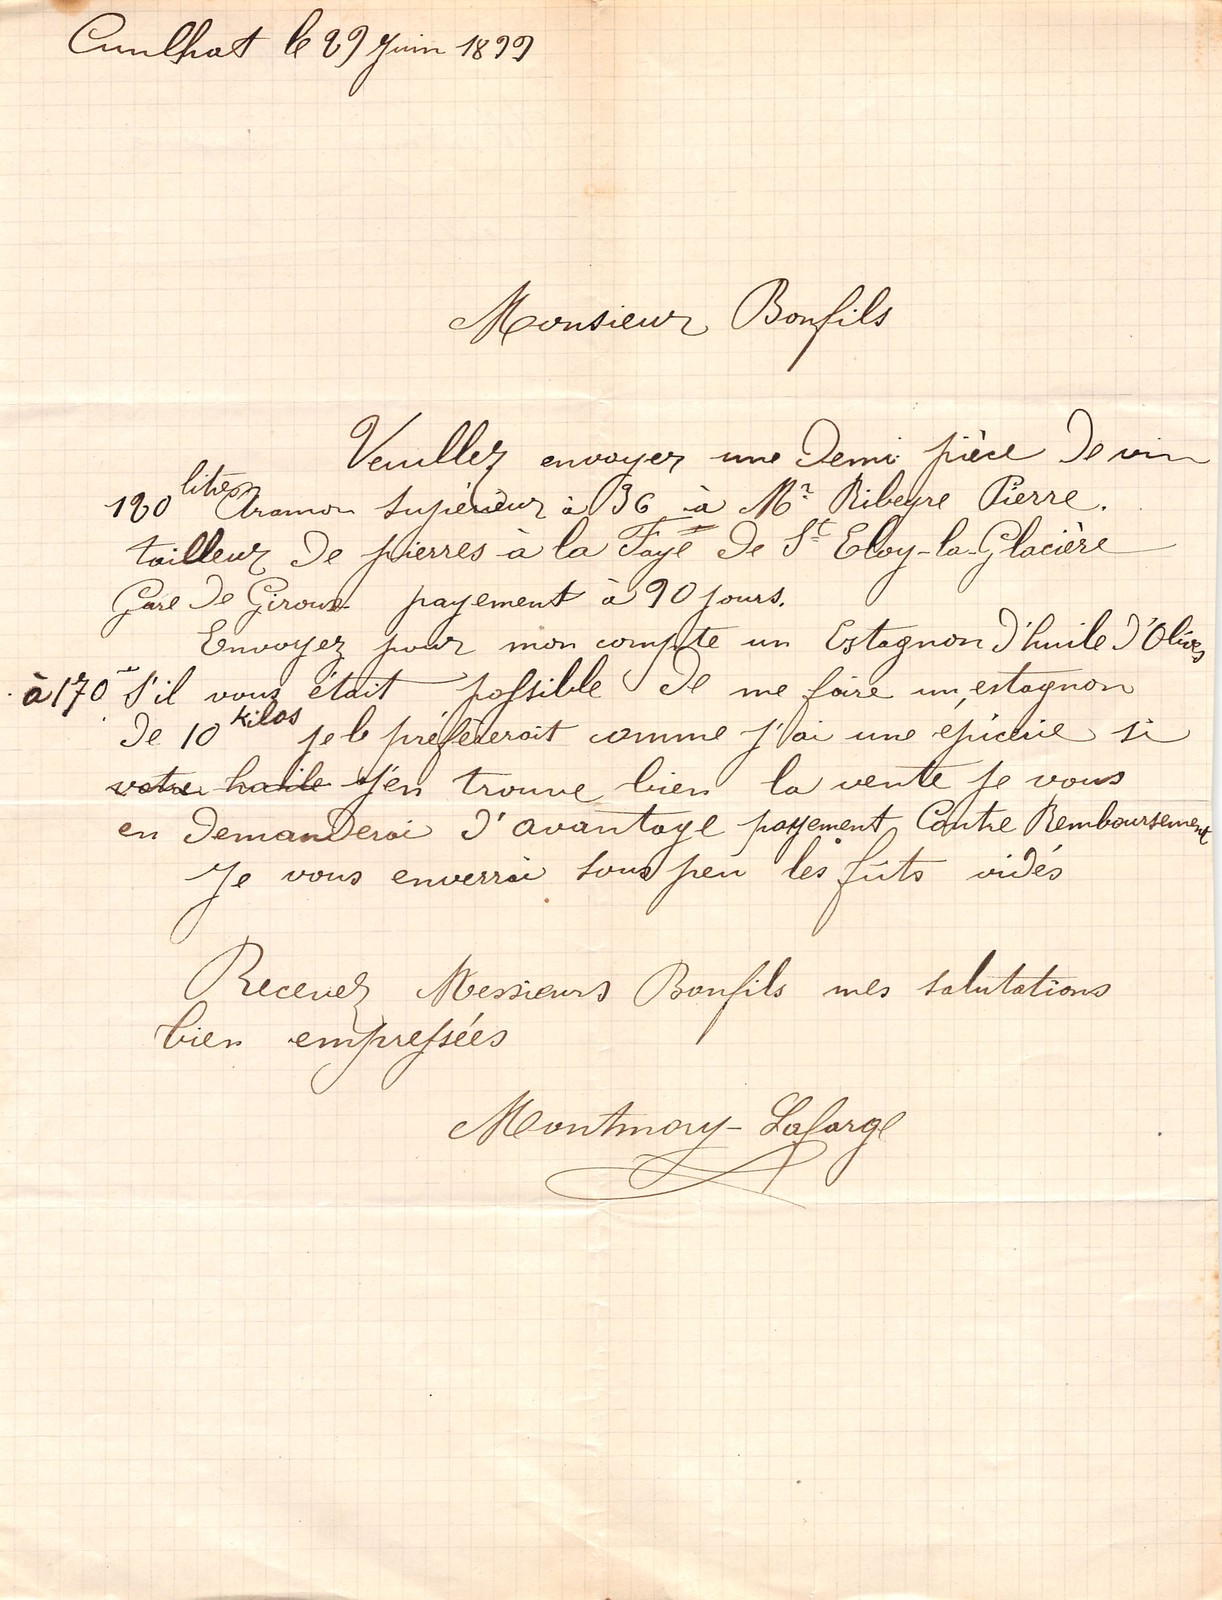 Cunlhat le 29 Juin 1899
Monsieur Bonfils
Veuillez envoyer une Demi pièce De vin
120 litres Aramon Supérieur à 36 à Mr Ribeyre Pierre.
tailleur De pierres à la Faye De St Eloy-la-Glacière
Gare De Giroux payement à 90 jours.
Envoyez pour mon compte un Estagnon D'huile D'Olives
à 170 S'il vous était possible De me faire un estagnon
De 10 kilos je le préfèrerait comme j'ai une épicerie si
votre huile j'en trouve bien la vente je vous
en Demanderai D'avantage payement Contre Remboursement
Je vous enverrai sous peu les fûts vidés
Recevez Messieurs Bonfils mes salutations
bien empressées
Montmory-Lafarge